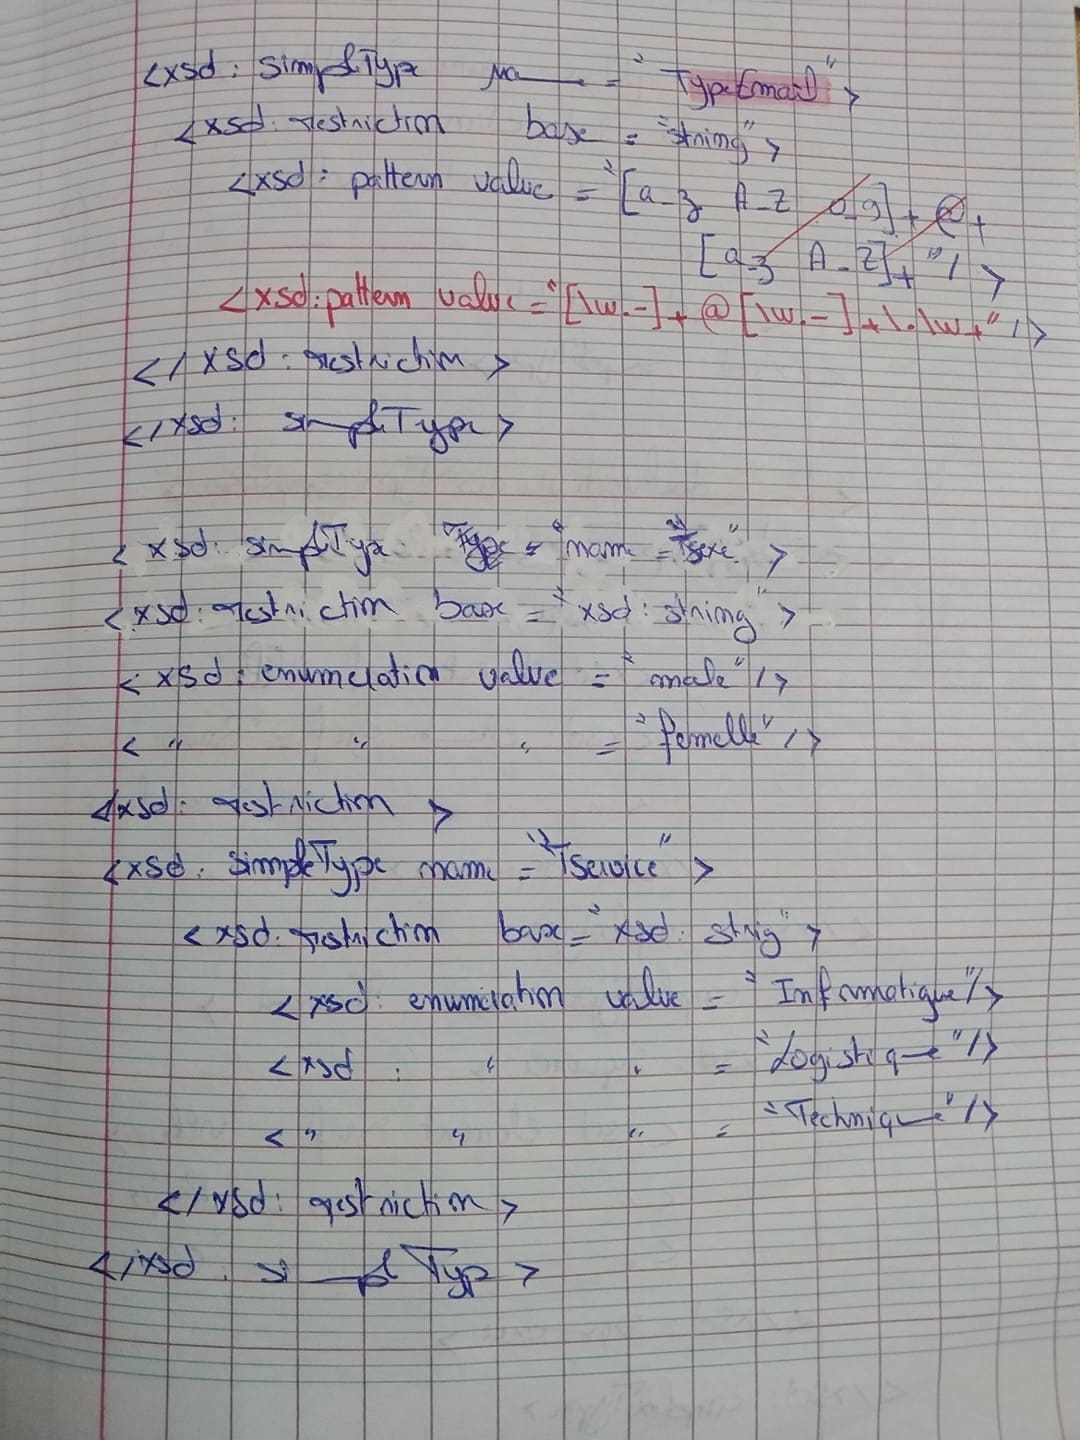 <xsd: simpleType na—— = "TypeEmail">
<xsd: restriction base = "string">
<xsd: pattern value = "[a-z A-Z 0-9]+ @+
[a-z A-Z]+ "/>
<xsd:pattern value="[\w.-]+ @[\w.-]+\.\w+"/>
</xsd: restriction>
</xsd: simpleType>
< xsd: simpleType name = "Tsexe" >
<xsd: restriction base = "xsd: string" >
< xsd: enumeration value = "male"/>
< " " " = "femelle"/>
<xsd: restriction >
<xsd: simpleType name = "Tservice" >
<xsd: restriction base= "xsd: strig" >
<xsd: enumeration value = "Informatique"/>
<xsd : " " = "Logistique"/>
< " " " = "Technique"/>
</xsd: restriction >
</xsd: simplTyp >